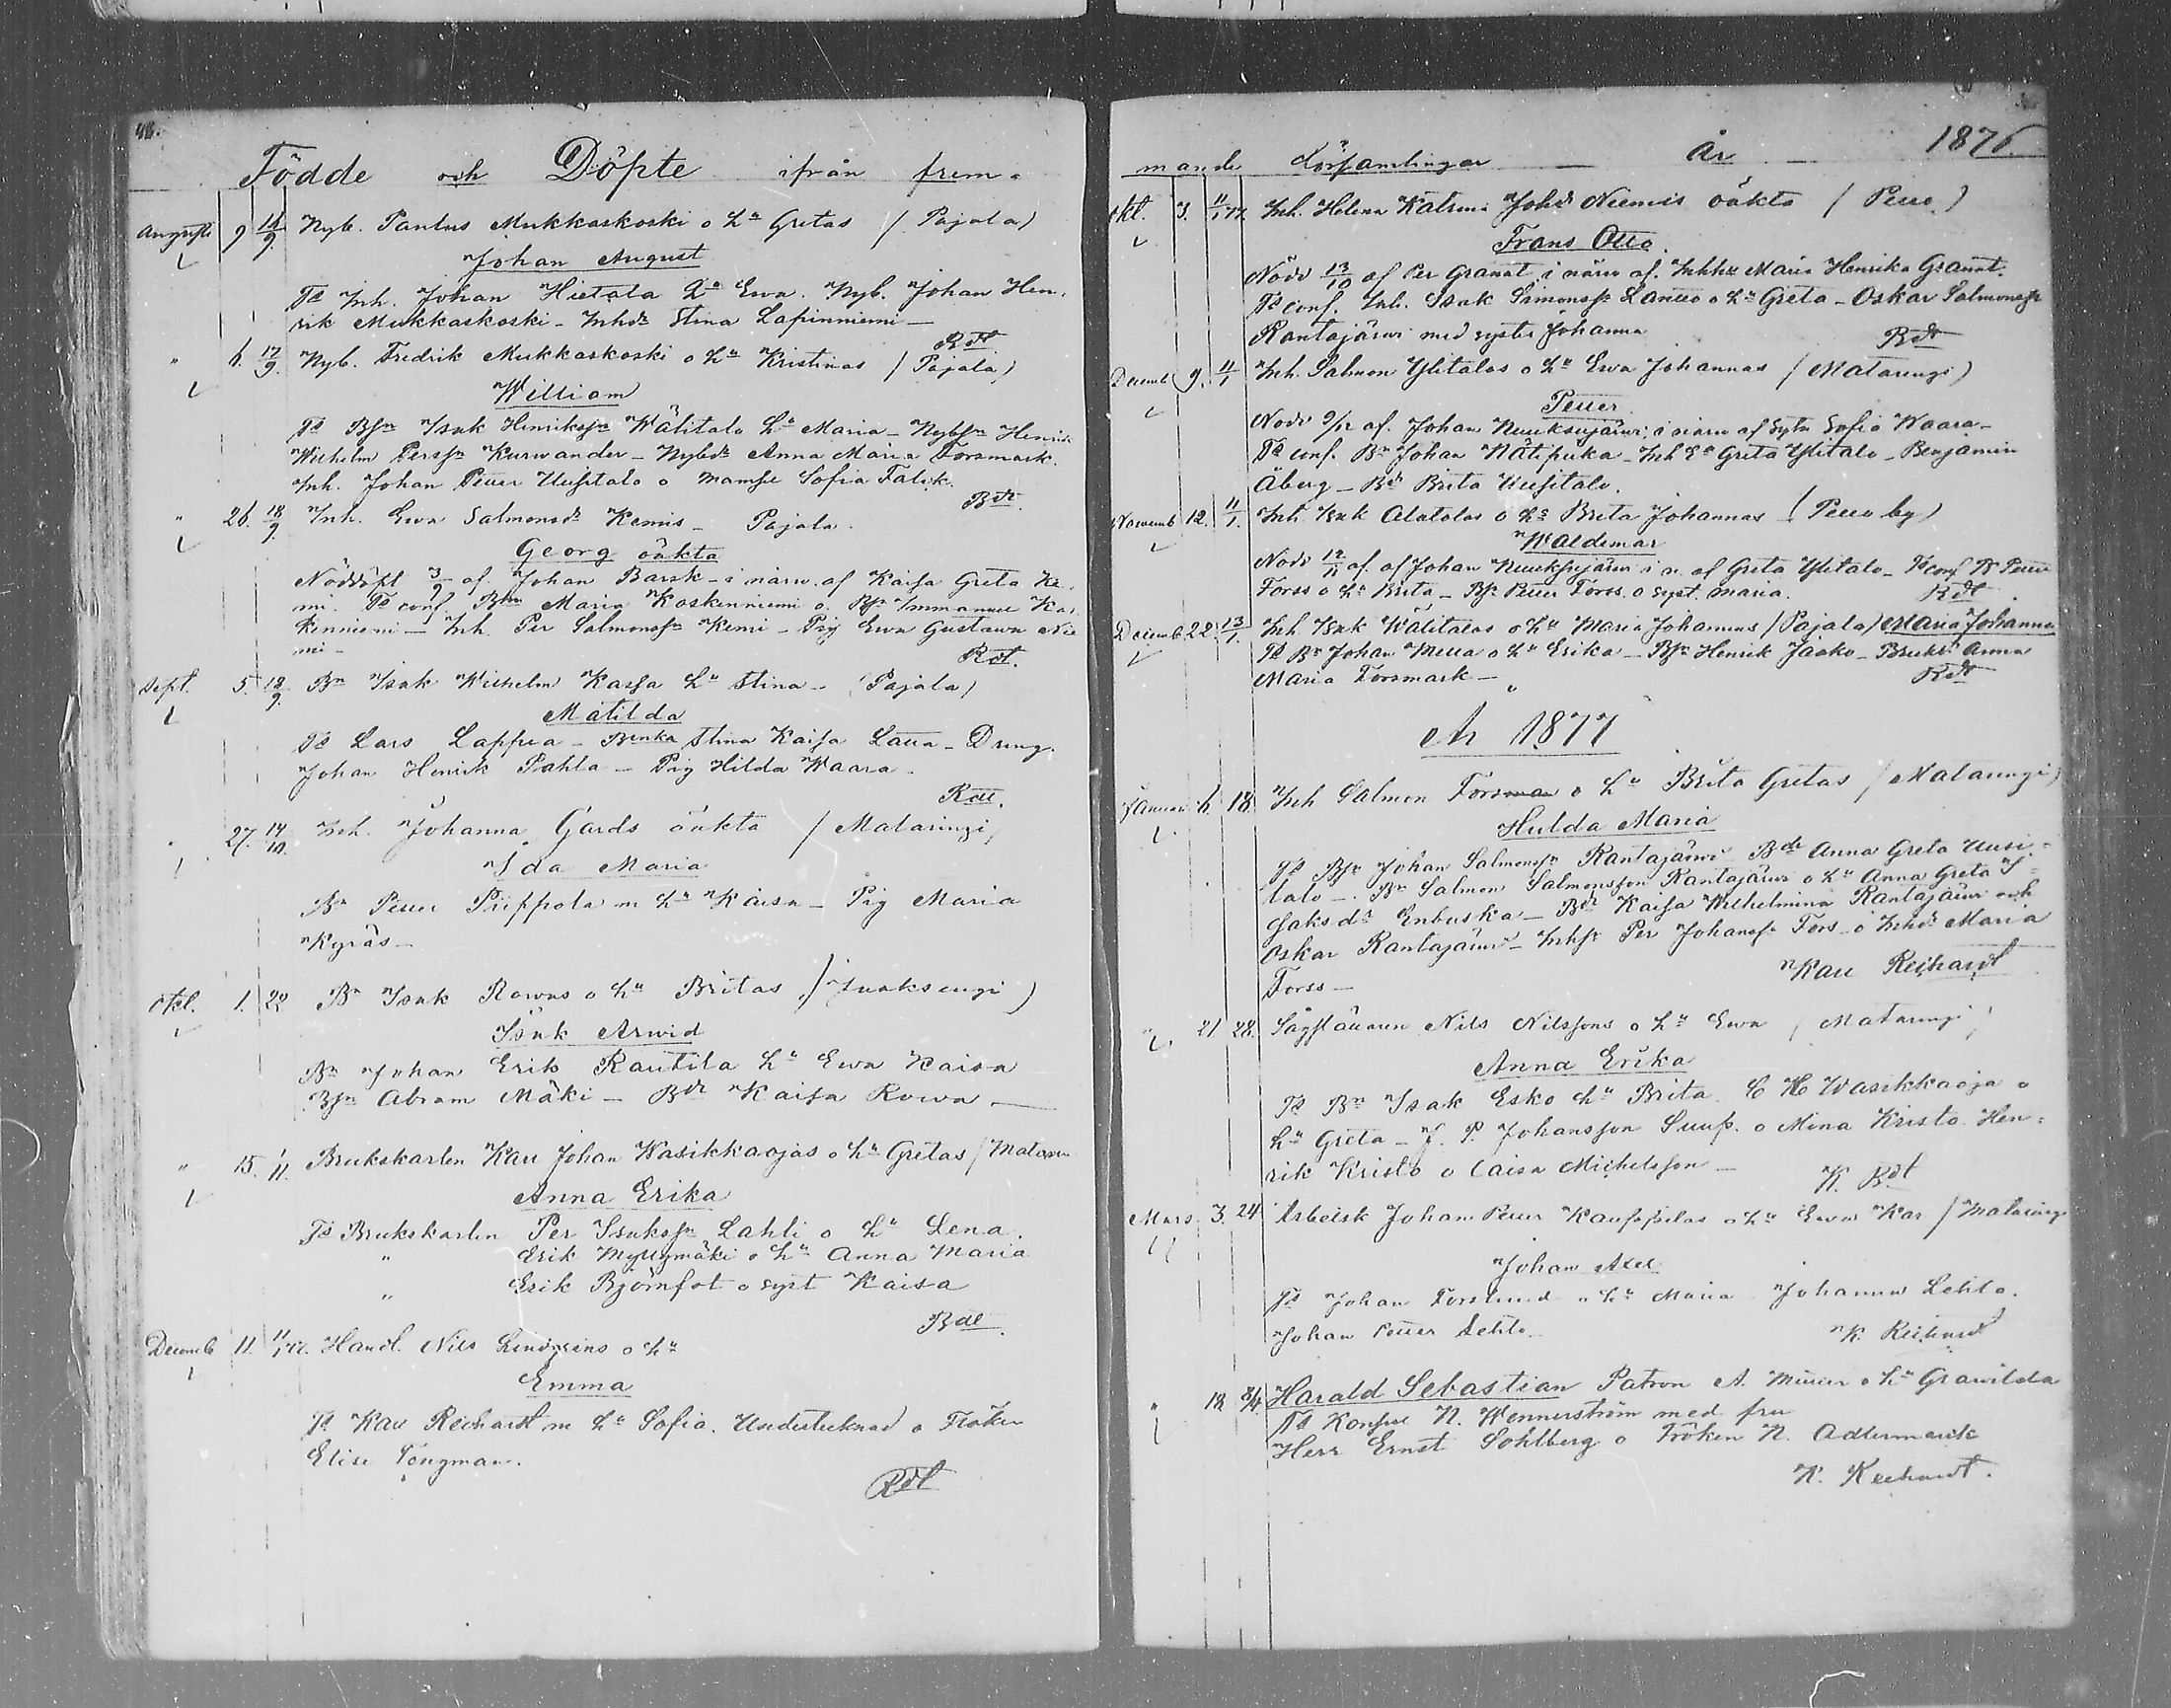 48.
Födde och Döpte ifrån frem-
Augusti 9 14/9 Nyb. Paulus Mukkaskoski o hu Gretas (Pajala)
Johan August
Fd Inh. Johan Hietala hu Ewa. Nyb. Johan Hen-
rik Mukkaskoski - Inhdr Stina Lapinniemi -
Rdt
" 6. 17/9. Nyb. Fredrik Mukkaskoski o hu Kristinas (Pajala)
William
Fd Bsn Isak Henrikssn Wälitalo hu Maria - Nybsn Henrik
Wilhelm Perssn Kurwander - Nybdr Anna Maria Forsmark.
Inh. Johan Petter Uusitalo o Mamse Sofia Falck.
Rdt.
" 26. 18/9 Inh. Ewa Salmonsdr Kemis - Pajala.
Georg oäkta
Nöddöpt 3/9 af Johan Barsk - i närw. af Kaisa Greta Ke-
mi. Fd conf. Maria Koskenniemi o. Bsn Immanuel Kos-
kenniemi - Inh. Per Salmonssn Kemi - Pig Ewa Gustawa Nie
mi -
Rdt.
Sept. 5. 18/9. Bn Isak Wilhelm Kassa hu Stina - (Pajala)
Matilda
Fd Lars Lappea - Benka Stina Kaisa Lana - Dreng.
Johan Henrik Pahla - Pig Hilda Waara -
Rdt.
" 27. 14/10. Inh. Johanna Gards oäkta (Matarengi)
Ida Maria
Bn Petter Piippola m hu Kaisa - Pig Maria
Kyräs -
Okt. 1. 22 Bn Isak Rowas o hu Britas (Juoksengi)
Isak Arwid
Bn Johan Erik Rautila hu Ewa Kaisa
Bsn Abram Mäki - Bdr Kaisa Rowa -
" 15. 1/11. Brukskarlen Karl Johan Wasikkaojas o hu Gretas (Mataren
Anna Erika
Fd Brukskarlen Per Isakssn Lahti o hu Lena.
" Erik Myllymäki o hu Anna Maria
" Erik Björnfot o syst Kaisa
Rdt.
Decemb 11. 11/1 77. Handl. Nils Lindgrens o hu
Emma
Fd Karl Reichardt m hu Sofia. Undertecknad o Fröken
Elise Tengman.
Rdt
mande Församlingar - År - 1876.
Okt. 3. 11/1 77 Inh. Helena Katrina Johsdr Niemis oäkta (Pello)
Frans Otto.
Nödd 13/10 af Per Granat i närw af. Inhhu Maria Henrika Granat.
Fd conf. Inh. Isak Simonssn Lantto o hu Greta - Oskar Salmonssn
Rantajärwi med syster Johanna
Rdt
Decemb 9. 11/1 Inh. Salmon Ylitalos o hu Ewa Johannas (Matarengi)
Petter.
Nödd 9/12 af. Johan Nuuksujärwi; i närw af Syta Sofia Waara -
Fd conf. Bn Johan Nätipuka - Inh Ea Greta Ylitalo - Benjamin
Äberg - Bdr Brita Uusitalo.
Novemb 12. 11/1. Inh. Isak Alatalos o hu Brita Johannas (Pello by)
Waldemar
Nödd 12/11 af. af Johan Nuuksujärwi i n. af Greta Ylitalo - Fd conf Bn Petter
Forss o hu Brita - Bsn Petter Forss. o syst. Maria.
Rdt
Decemb 22 13/1. Inh Isak Wälitalos o hu Maria Johannas (Pajala) Maria Johanna
Fd Bn Johan Mella o hu Erika - Bsn Henrik Jaako - Bruksdr Anna
Maria Forsmark -
Rdt
År 1877
Januari 6. 18. Inh Salmon Forsman o hu Brita Gretas (Matarengi)
Hulda Maria
Fd Bsn Johan Salmonssn Rantajärwi Bdr Anna Greta Uusi-
talo - Bn Salmon Salmonsson Rantajärwi o hu Anna Greta I-
saksdr Enbuska - Bdr Kaisa Wilhelmina Rantajärwi och
Oskar Rantajärwi - Inhsn Per Johanssn Fors o Inhdr Maria
Forss -
Karl Reichardt
" 21 28. Sågställaren Nils Nilssons o hu Ewa (Matarengi)
Anna Erika
Fd Bn Isak Esko hu Brita. C H Wasikkaoja o
hu Greta - J. P. Johansson Sunp. o Mina Kristo. Hen-
rik Kristo o Caisa Michelsson -
K. Rdt
Mars 3. 24 Arbetsk Johan Petter Kauppilas o hu Ewa Kar (Matarengi
Johan Axel
Fd Johan Forslund o hu Maria Johanna Lehto.
Johan Petter Lehto.
K. Reichardt
" 12 8/4 Harald Sebastian Patron A. o hu Grawilda
Fd Konsul N. Wennerström med fru
Herr Ernst Sohlberg o Fröken N. Adlermark
K. Reichardt.